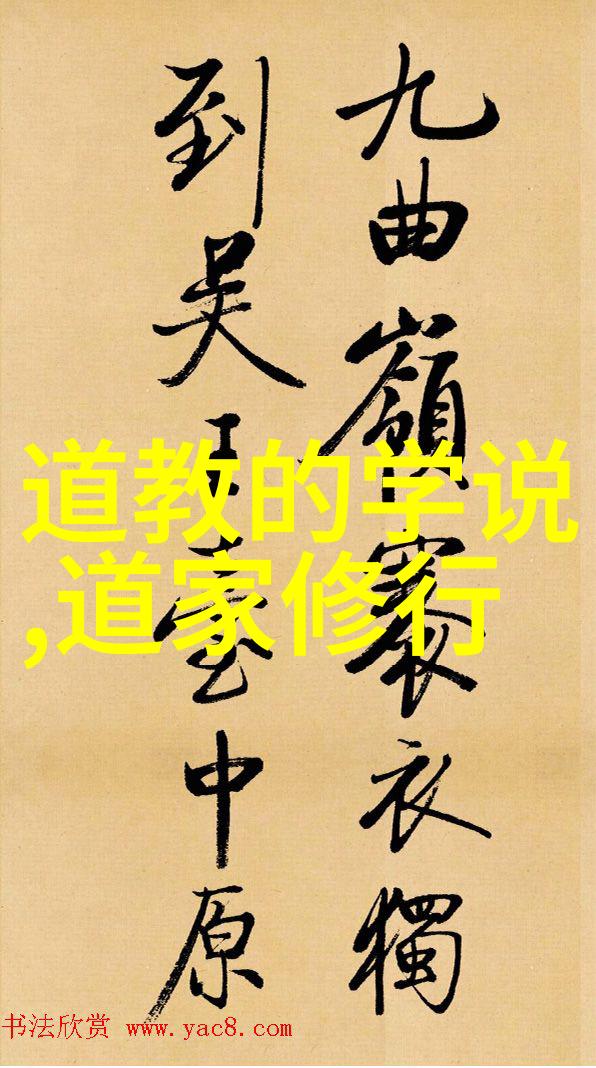 九曲嶺褰衣獨
到吴王臺中原
道教的学说
,道家修行
书法欣赏 www.yac8.com